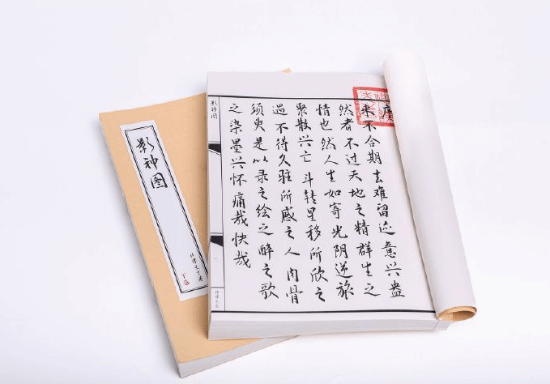 来不合期去难留迹意兴盎
然者不过天地之精群生之
情也然人生如寄光阴逆旅
聚散兴亡斗转星移所欣之
遇不得久驻所感之人肉骨
须臾是以录之绘之醉之歌
之染墨兴怀痛哉快哉
影神图
影神图